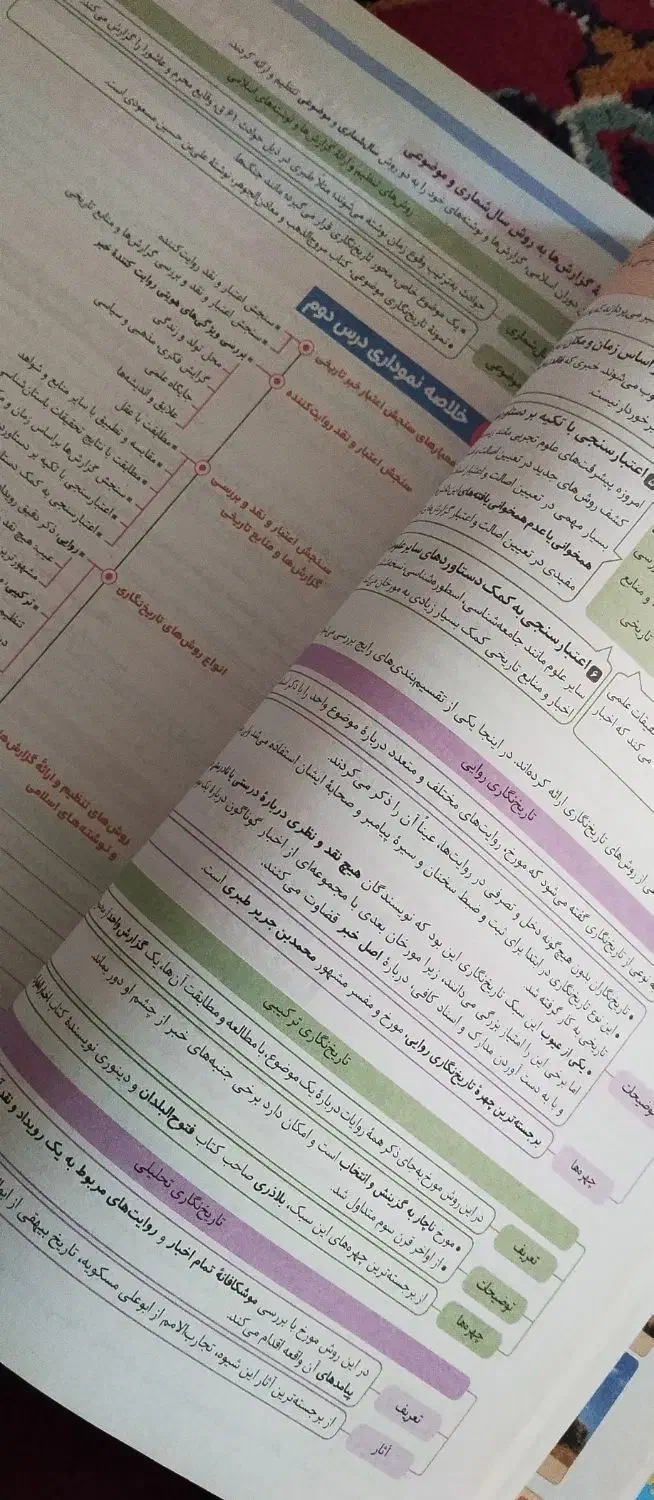 اساس زمان و مکان
اعتبارسنجی با تکیه بر
امروزه پیشرفت‌های علوم تجربی مانند
کشف روش‌های جدید در تعیین اصالت
بسیار مهمی در تعیین اصالت و اعتبار
همخوانی یا عدم همخوانی یافته‌های
مفیدی در تعیین اصالت و اعتبار گزارش‌های
۶ اعتبارسنجی به کمک دستاوردهای سایر علوم
سایر علوم مانند جامعه‌شناسی، اسطوره‌شناسی
اخبار و منابع تاریخی کمک بسیار زیادی به مورخان
از روش‌های تاریخ‌نگاری ارائه کرده‌اند، در اینجا یکی از تقسیم‌بندی‌های رایج بررسی
تاریخ‌نگاری روایی
نوعی از تاریخ‌نگاری گفته می‌شود که مورخ، روایت‌های مختلف و متعدد دربارهٔ موضوع واحد را با ذکر
توضیحات
• تاریخ‌نگاران بدون هیچ‌گونه دخل و تصرفی در روایت‌ها، عیناً آن را ذکر می‌کردند.
• این نوع تاریخ‌نگاری در ابتدا برای ثبت و ضبط سخنان و سیرهٔ پیامبر و صحابهٔ ایشان استفاده می‌شد
تاریخی به کار گرفته شد.
• یکی از عیوب این سبک تاریخ‌نگاری این بود که نویسندگان هیچ نقد و نظری دربارهٔ درستی یا نادرستی
اما برخی این را امتیاز بزرگی می‌دانند، زیرا مورخان بعدی با مجموعه‌ای از اخبار گوناگون دربارهٔ یک
و با به دست آوردن مدارک و اسناد کافی، دربارهٔ اصل خبر قضاوت می‌کنند.
چهره‌ها
برجسته‌ترین چهرهٔ تاریخ‌نگاری روایی، مورخ و مفسر مشهور محمدبن جریر طبری است.
تاریخ‌نگاری ترکیبی
تعریف
در این روش مورخ به‌جای ذکر همهٔ روایات دربارهٔ یک موضوع، با مطالعه و مطابقت آن‌ها، یک گزارش واحد
توضیحات
• مورخ ناچار به گزینش و انتخاب است و امکان دارد برخی جنبه‌های خبر از چشم او دور بماند
• از اواخر قرن سوم متداول شد.
چهره‌ها
از برجسته‌ترین چهره‌های این سبک، بلاذری صاحب کتاب فتوح‌البلدان و دینوری نویسندهٔ کتاب
تاریخ‌نگاری تحلیلی
تعریف
در این روش مورخ با بررسی موشکافانهٔ تمام اخبار و روایت‌های مربوط به یک رویداد و نقد
پیامدهای آن واقعه اقدام می‌کند.
آثار
از برجسته‌ترین آثار این شیوه، تجارب‌الامم از ابوعلی مسکویه، تاریخ بیهقی از
گزارش‌ها به روش سال‌شماری و موضوعی
دوران اسلامی، گزارش‌ها و نوشته‌های خود را به دو روش سال‌شماری و موضوعی تنظیم و ارائه کردند.
روش‌های تنظیم و ارائهٔ گزارش‌ها و نوشته‌های اسلامی
حوادث به ترتیب وقوع زمان نوشته می‌شوند؛ مثلاً طبری در ذیل حوادث ۶۱ ق، وقایع محرم و عاشورا را گزارش می‌کند.
موضوعی
• یک موضوع خاص محور تاریخ‌نگاری قرار می‌گیرد؛ مانند جنگ‌ها
• نمونهٔ تاریخ‌نگاری موضوعی، کتاب مروج‌الذهب و معادن‌الجوهر، نوشتهٔ علی‌بن حسین مسعودی است.
خلاصه نموداری درس دوم
معیارهای سنجش اعتبار خبر تاریخی
• سنجش اعتبار و نقد روایت‌کننده
• سنجش اعتبار و نقد و بررسی گزارش‌ها و منابع تاریخی
سنجش اعتبار و نقد روایت‌کننده
• بررسی ویژگی‌های هویتی روایت کنندهٔ خبر
محل تولد و زندگی
گرایش فکری، مذهبی و سیاسی
جایگاه علمی
علایق و اندیشه‌ها
سنجش اعتبار و نقد و بررسی
گزارش‌ها و منابع تاریخی
• مطابقت با عقل
• مقایسه و تطبیق با سایر منابع و شواهد
• مطابقت با نتایج تحقیقات باستان‌شناسی
• سنجش گزارش‌ها براساس زمان و
• اعتبارسنجی با تکیه بر دستاورد
• اعتبارسنجی به کمک
انواع روش‌های تاریخ‌نگاری
• روایی
ذکر دقیق
عیب: هیچ نقد
مشهورترین
• ترکیبی
تنظیم
روش‌های تنظیم و ارائهٔ گزارش‌ها
و نوشته‌های اسلامی